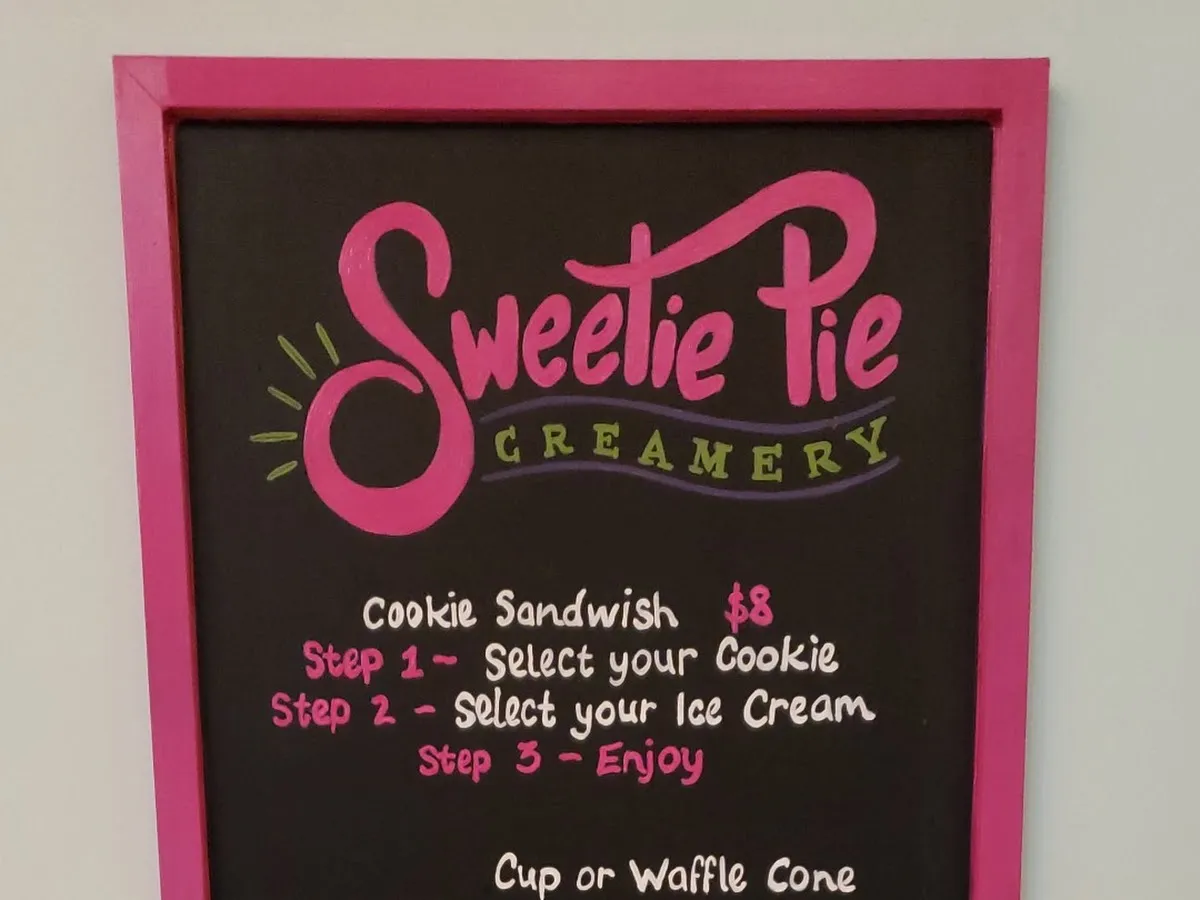 Sweetie Pie
CREAMERY
Cookie Sandwish $8
Step 1 - Select your Cookie
Step 2 - Select your Ice Cream
Step 3 - Enjoy
Cup or Waffle Cone